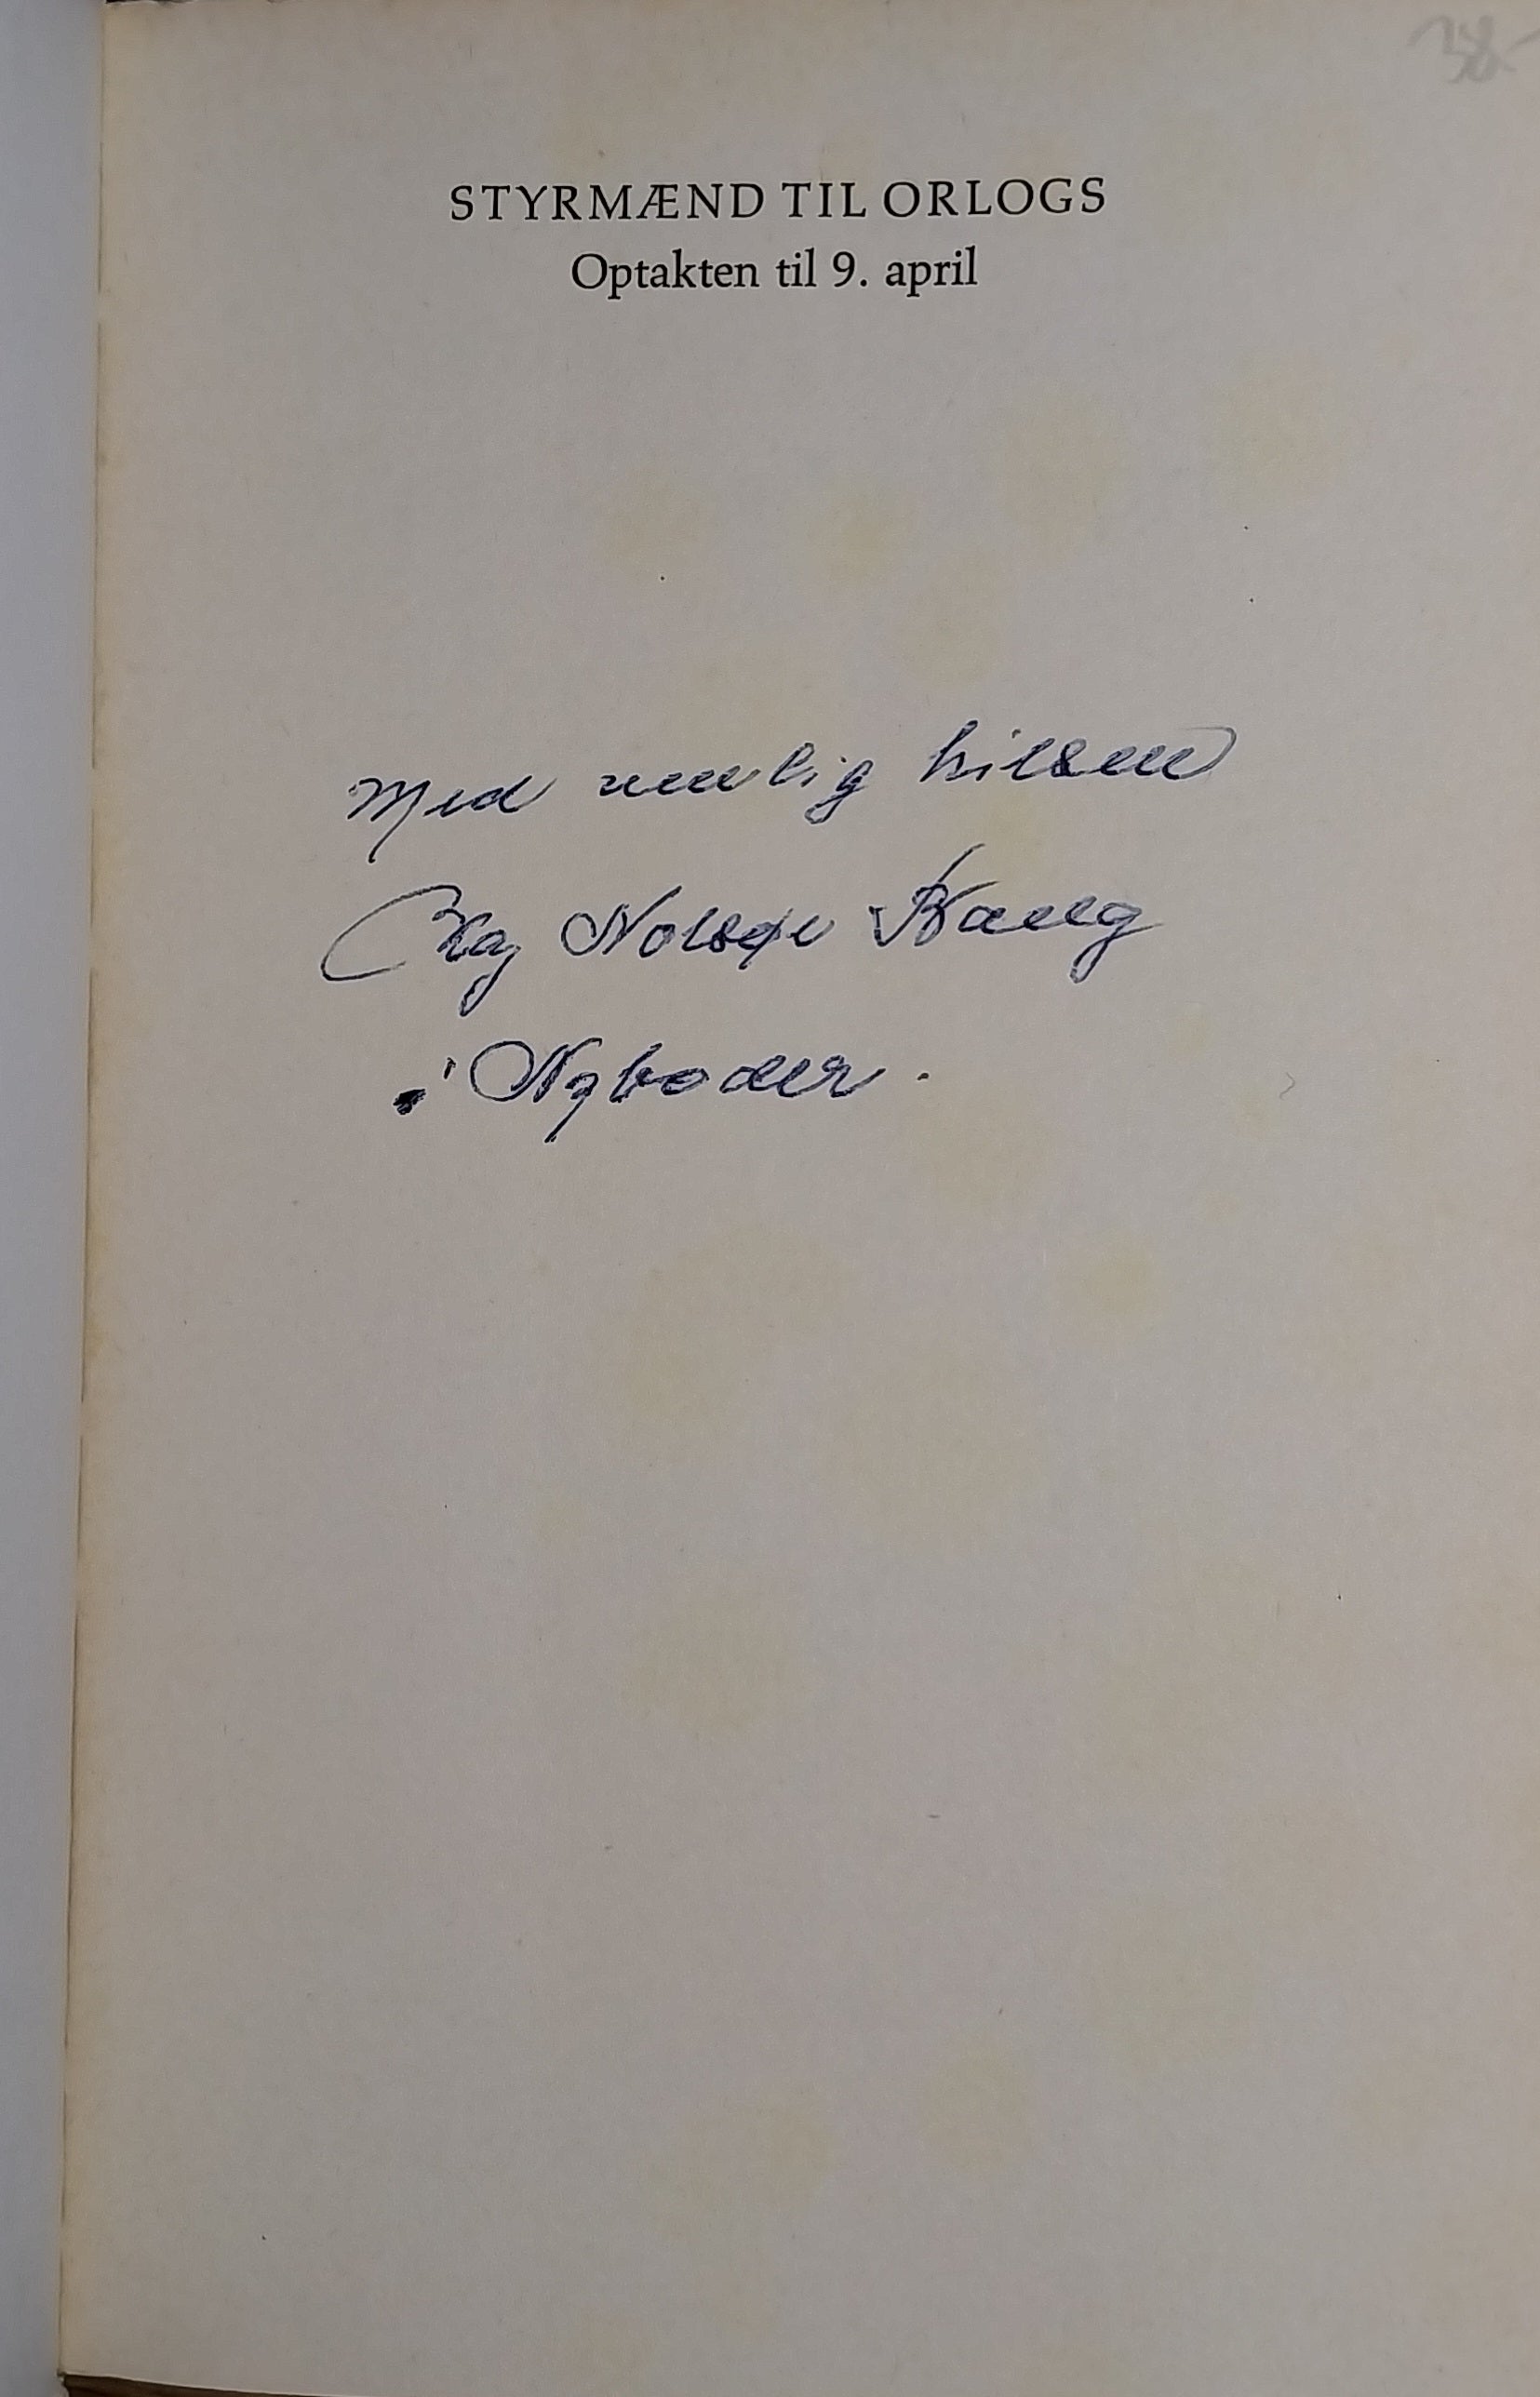 38-
STYRMÆND TIL ORLOGS
Optakten til 9. april
Med venlig hilsen
Kaj Nolsøe Bang
i Nyboder.